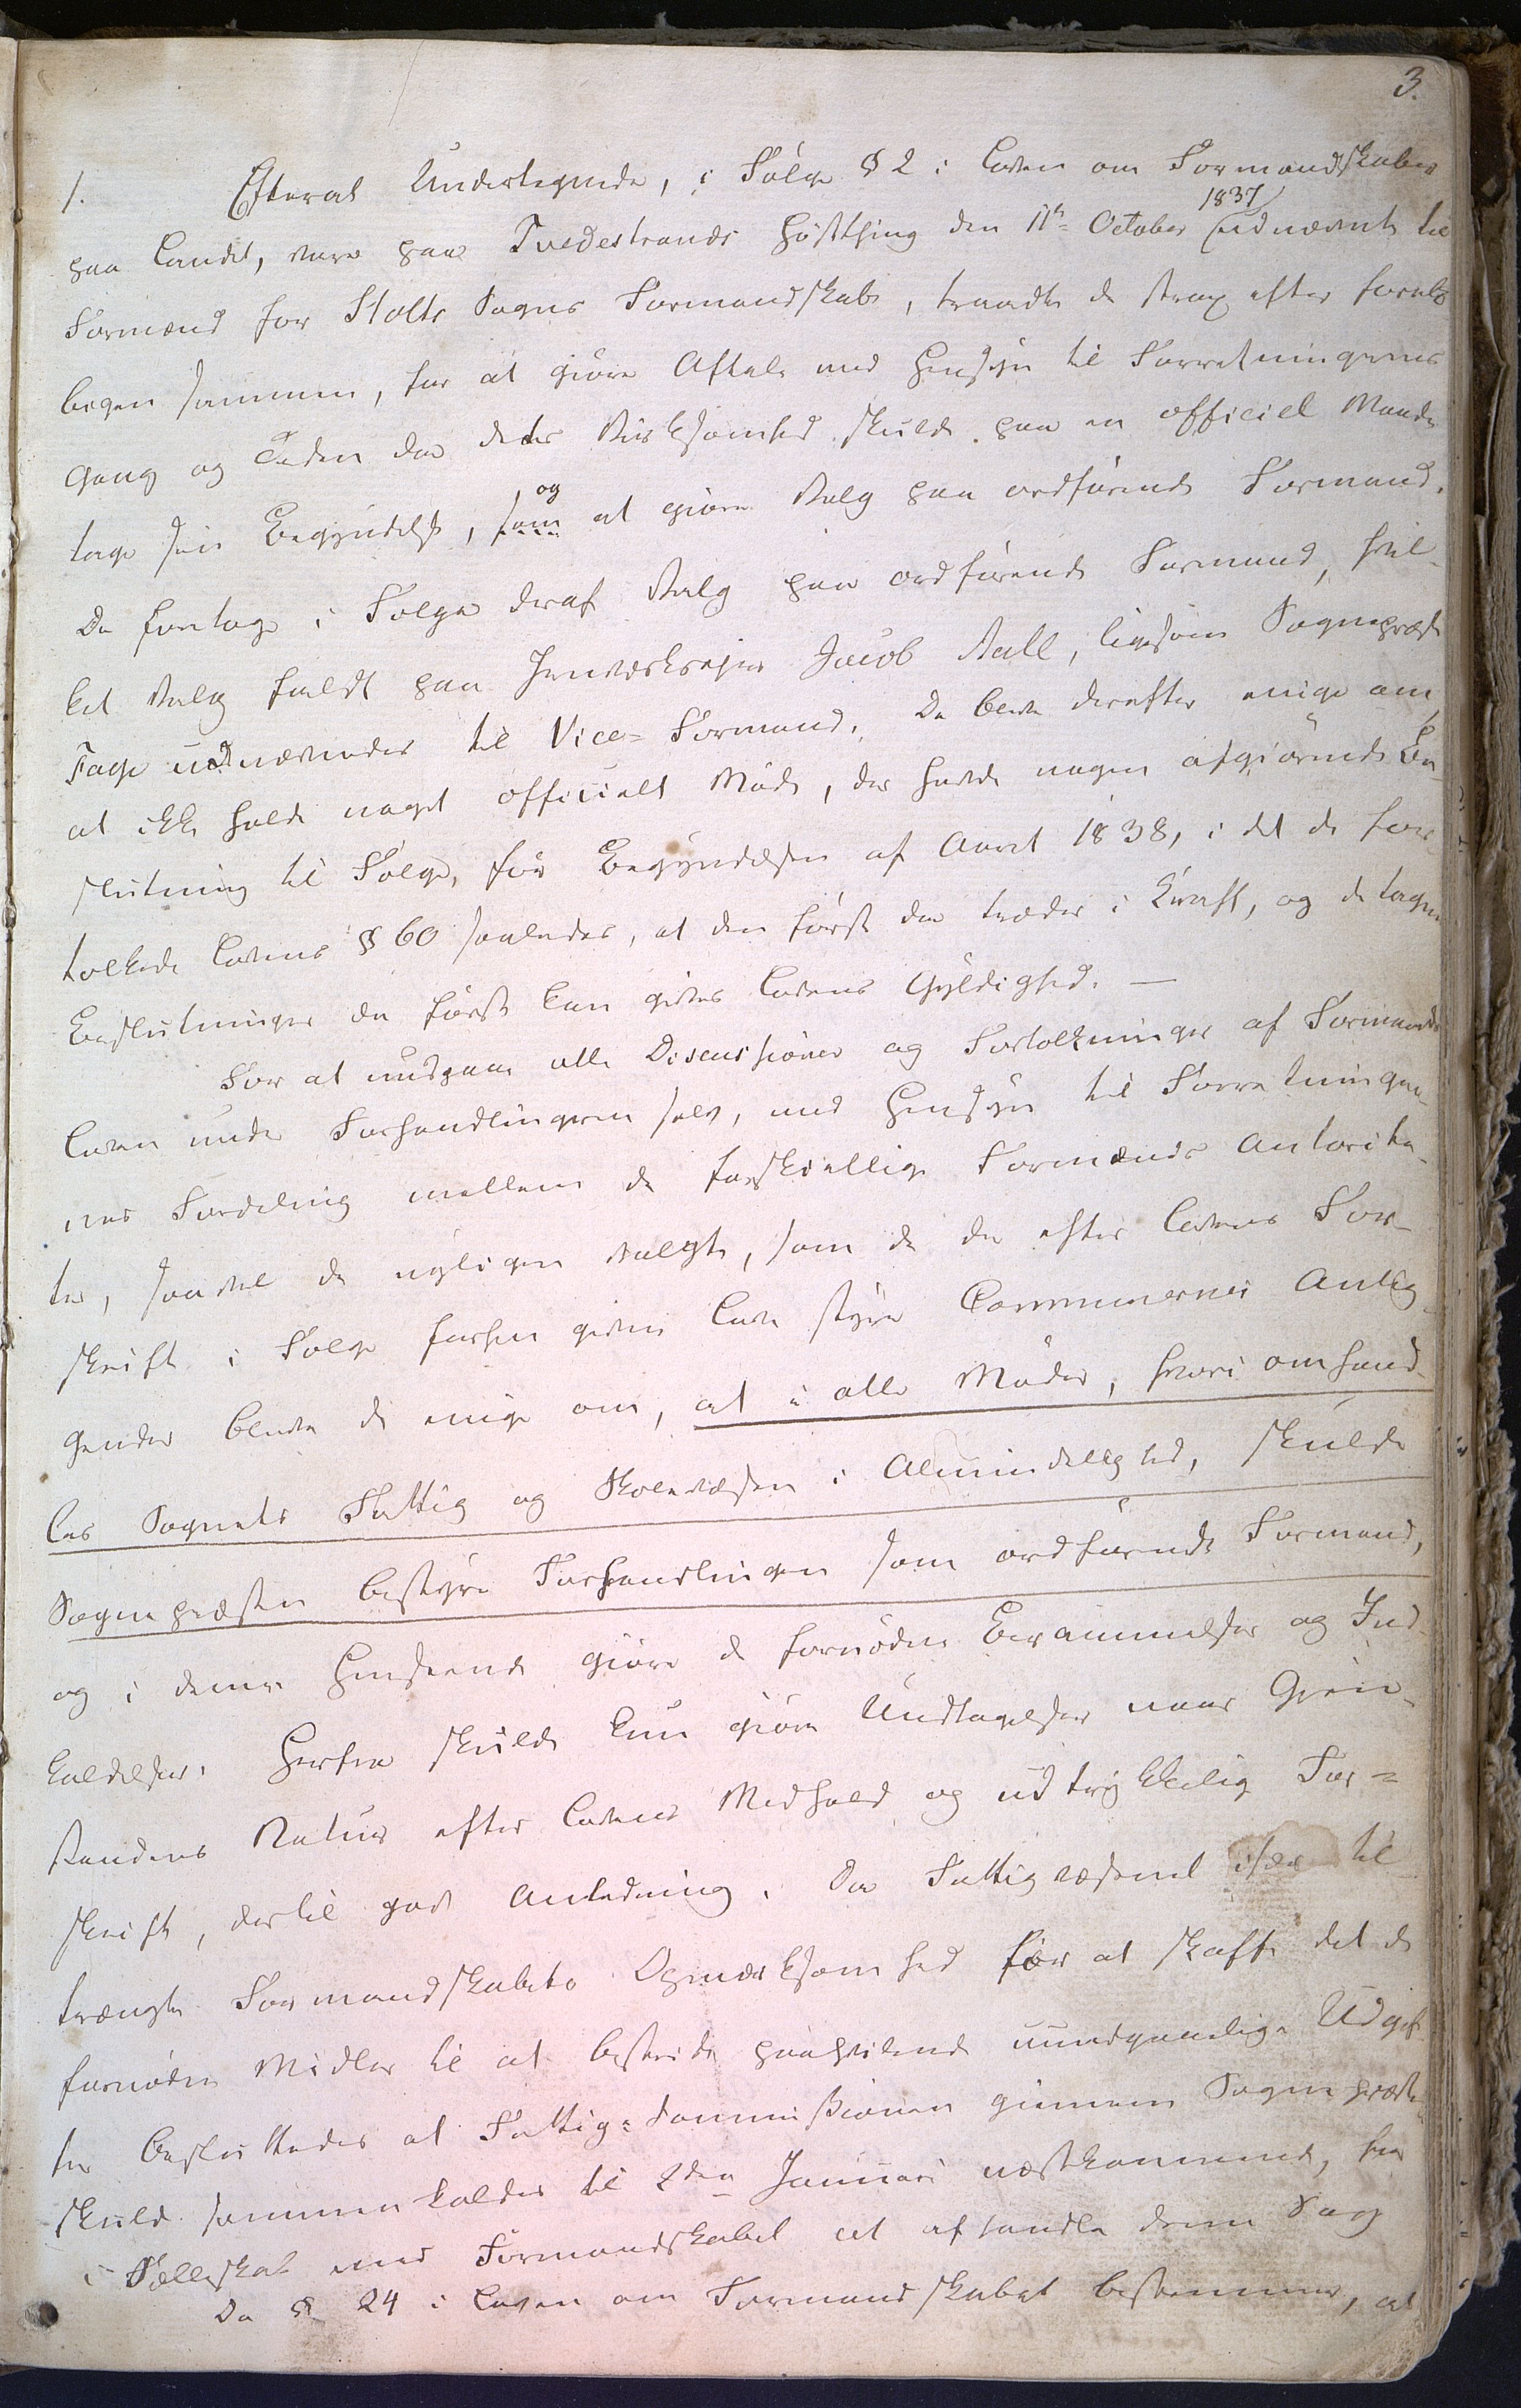 3.
1. Efterat Undertegnede, i Følge § 2 i Loven om Formandskaber
paa Landet, vare paa Tvedestrands Høstthing den 11te October 1837 udnævnte til
Formænd for Holts Sogns Formandskab, traadte de strax efter foreløbigen sammen, for at giøre Aftale med Hensyn til Forretningernes
Gang og Tiden da deres Virksomhed skulde paa en officiel Maade
tage sin Begyndelse, som og at giøre Valg paa ordførende Formand.
De foretoge i Følge deraf Valg paa ordførende Formand, hvil-
ket Valg faldt paa Jernværkseier Jacob Aall, ligesom Sognepræst
Faye udnævnedes til Vice-Formand. De bleve derefter enige om
at ikke holde noget officielt Møde, der havde nogen afgiørende Be-
slutning til Følge, før Begyndelsen af Aaret 1838, i det de for-
tolkede Lovens § 60 saaledes, at den først da træder i Kraft, og de tagne
Beslutninger da først kan gives Lovens Gyldighed. —
For at undgaae alle Discussioner og Fortolkninger af Formands
Loven under Forhandlingerne selv, med Hensyn til Forretninger-
nes Fordeling mellem de forskiellige Formænds Autorite-
ter, saavel de nyligen valgte, som de der efter Lovens For-
skrift i Følge forhen givne Love styre Communernes Anlig-
gender bleve de enige om, at i alle Møder, hvori omhand-
les Sognets Fattig og Skolevæsen i Almindelighed, skulde
Sognepræsten bestyre Forhandlingen som ordførende Formand,
og i denne Henseende giøre de fornødne Berammelser og Ind-
kaldelser. Herfra skulde kun giøres Undtagelser naar Gien-
standens Natur efter Lovens Medhold og udtrykkelig For=
skrift, dertil gav Anledning. Da Fattigvæsenet især til-
trængte Formandskabets Opmærksomhed for at skaffe det de
fornødne Midler til at bestride paahvilende uundgaaelige Udgif-
ter besluttedes at Fattig-Commissionen giennem Sognepræsten
skulde sammenkaldes til 2den Januari næstkommende, for
i Fælleskab med Formandskabet at afhandle denne Sag
Da § 24 i Loven om Formandskabet bestemmer, at